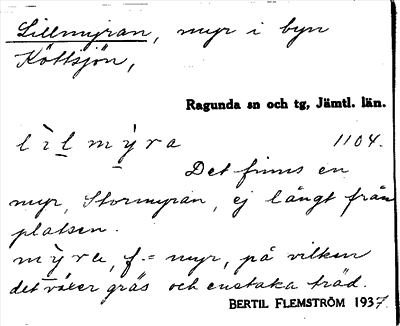 Lillmyran, myr i byn
Köttsjön,
Ragunda sn och tg, Jämtl. län.
lìlmy̍ra 1104.
Det finns en
myr, Stormyran, ej långt från
platsen.
my̍ra, f. = myr, på vilken
det växer gräs och enstaka träd.
BERTIL FLEMSTRÖM 1937.